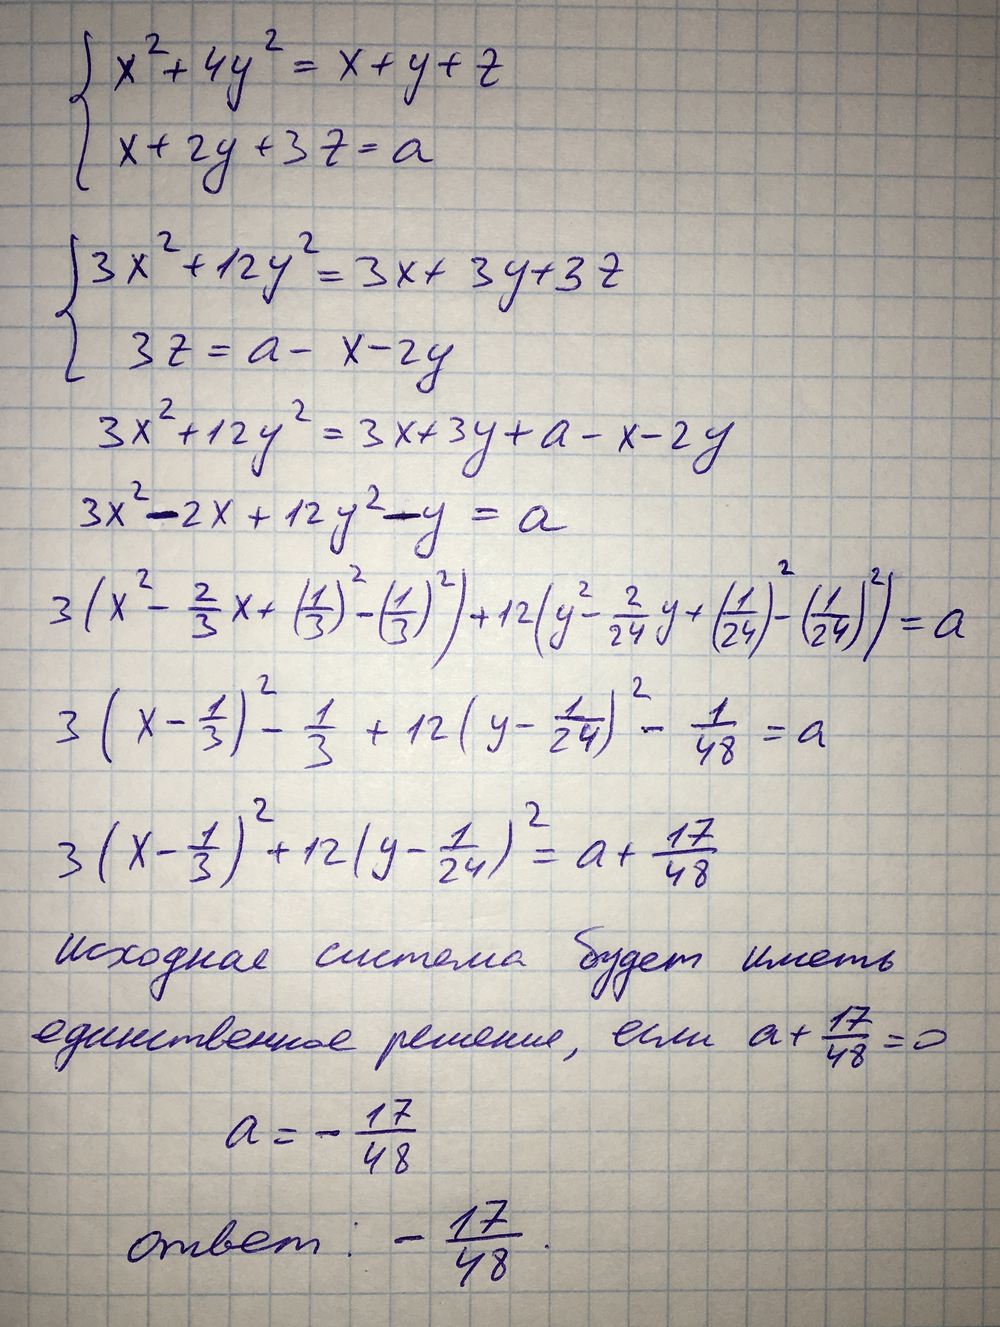 { x² + 4y² = x + y + z
x + 2y + 3z = a
{ 3x² + 12y² = 3x + 3y + 3z
3z = a - x - 2y
3x² + 12y² = 3x + 3y + a - x - 2y
3x² - 2x + 12y² - y = a
3(x² - 2/3 x + (1/3)² - (1/3)²) + 12(y² - 2/24 y + (1/24)² - (1/24)²) = a
3(x - 1/3)² - 1/3 + 12(y - 1/24)² - 1/48 = a
3(x - 1/3)² + 12(y - 1/24)² = a + 17/48
исходная система будет иметь
единственное решение, если a + 17/48 = 0
a = - 17/48
ответ: - 17/48.